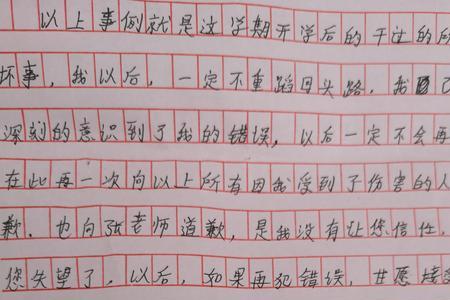 以上事例就是这学期开学后的干过的所
坏事，我以后，一定不重蹈回头路．我已
深刻的意识到了我的错误，以后一定不会再
在此再一次向以上所有因我受到了伤害的人
歉．也向张老师道歉，是我没有让您信任．
您失望了，以后，如果再犯错误，甘愿接受